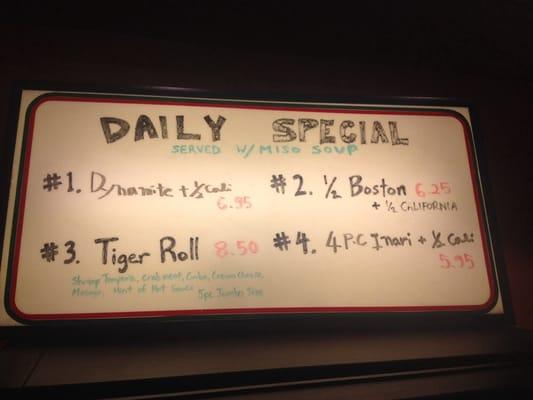 DAILY SPECIAL
SERVED W/ MISO SOUP
#1. Dynamite + ½ Cali
6.95
#2. ½ Boston 6.25
+ ½ CALIFORNIA
#3. Tiger Roll 8.50
Shrimp Tempura, Crab meat, Cuke, Cream Cheese,
Masago, Hint of Hot Sauce 5pc Jumbo Size
#4. 4 P.C Inari + ½ Cali
5.95